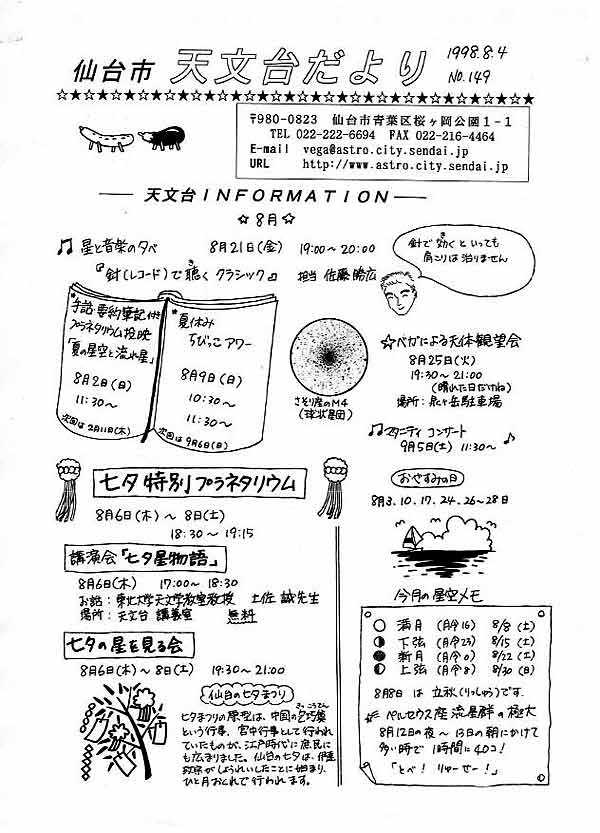 仙台市 天文台だより 1998.8.4
No.149
☆★☆★☆★☆★☆★☆★☆★☆★☆★☆★☆★☆★☆★☆★☆★☆★☆★☆★☆★☆★
〒980-0823 仙台市青葉区桜ヶ岡公園1-1
TEL 022-222-6694 FAX 022-216-4464
E-mail vega@astro.city.sendai.jp
URL http://www.astro.city.sendai.jp
天文台INFORMATION
☆8月☆
♫星と音楽の夕べ 8月21日(金) 19:00〜20:00
『針(レコード)で聴くクラシック』 担当 佐藤勝広
き
針で効くといっても
き
肩こりは治りません
*手話・要約筆記付き
プラネタリウム投映
「夏の星空と流れ星」
8月2日(日)
11:30〜
次回は2月11日(木)
*夏休み
ちびっこアワー
8月9日(日)
10:30〜
11:30〜
次回は9月6日(日)
さそり座のM4
(球状星団)
☆ベガによる天体観望会
8月25日(火)
19:30〜21:00
(晴れた日だけね)
場所:泉ヶ岳駐車場
♫マタニティ コンサート
9月5日(土) 11:30〜♪
おやすみの日
8月3.10.17.24.26〜28日
七夕特別プラネタリウム
8月6日(木)〜8日(土)
18:30〜19:15
講演会「七夕星物語」
8月6日(木) 17:00〜18:30
お話:東北大学天文学教室教授 土佐 誠先生
場所:天文台 講義室 無料
七夕の星を見る会
8月6日(木)〜8日(土) 19:30〜21:00
仙台の七夕まつり
きっこうでん
七夕まつりの原型は、中国の乞巧奠
という行事。宮中行事として行われ
ていたものが、江戸時代に庶民に
も広まりました。仙台の七夕は、伊達
政宗がしょうれいしたことに始まり、
ひと月おくれで行われます。
今月の星空メモ
満月 (月令16) 8/8(土)
下弦 (月令23) 8/15(土)
新月 (月令0) 8/22(土)
上弦 (月令8) 8/30(日)
8月8日 は 立秋(りっしゅう)です.
ペルセウス座 流星群の極大
8月12日の夜〜13日の朝にかけて
多い時で1時間に40コ!
「とべ! りゅーせー!」